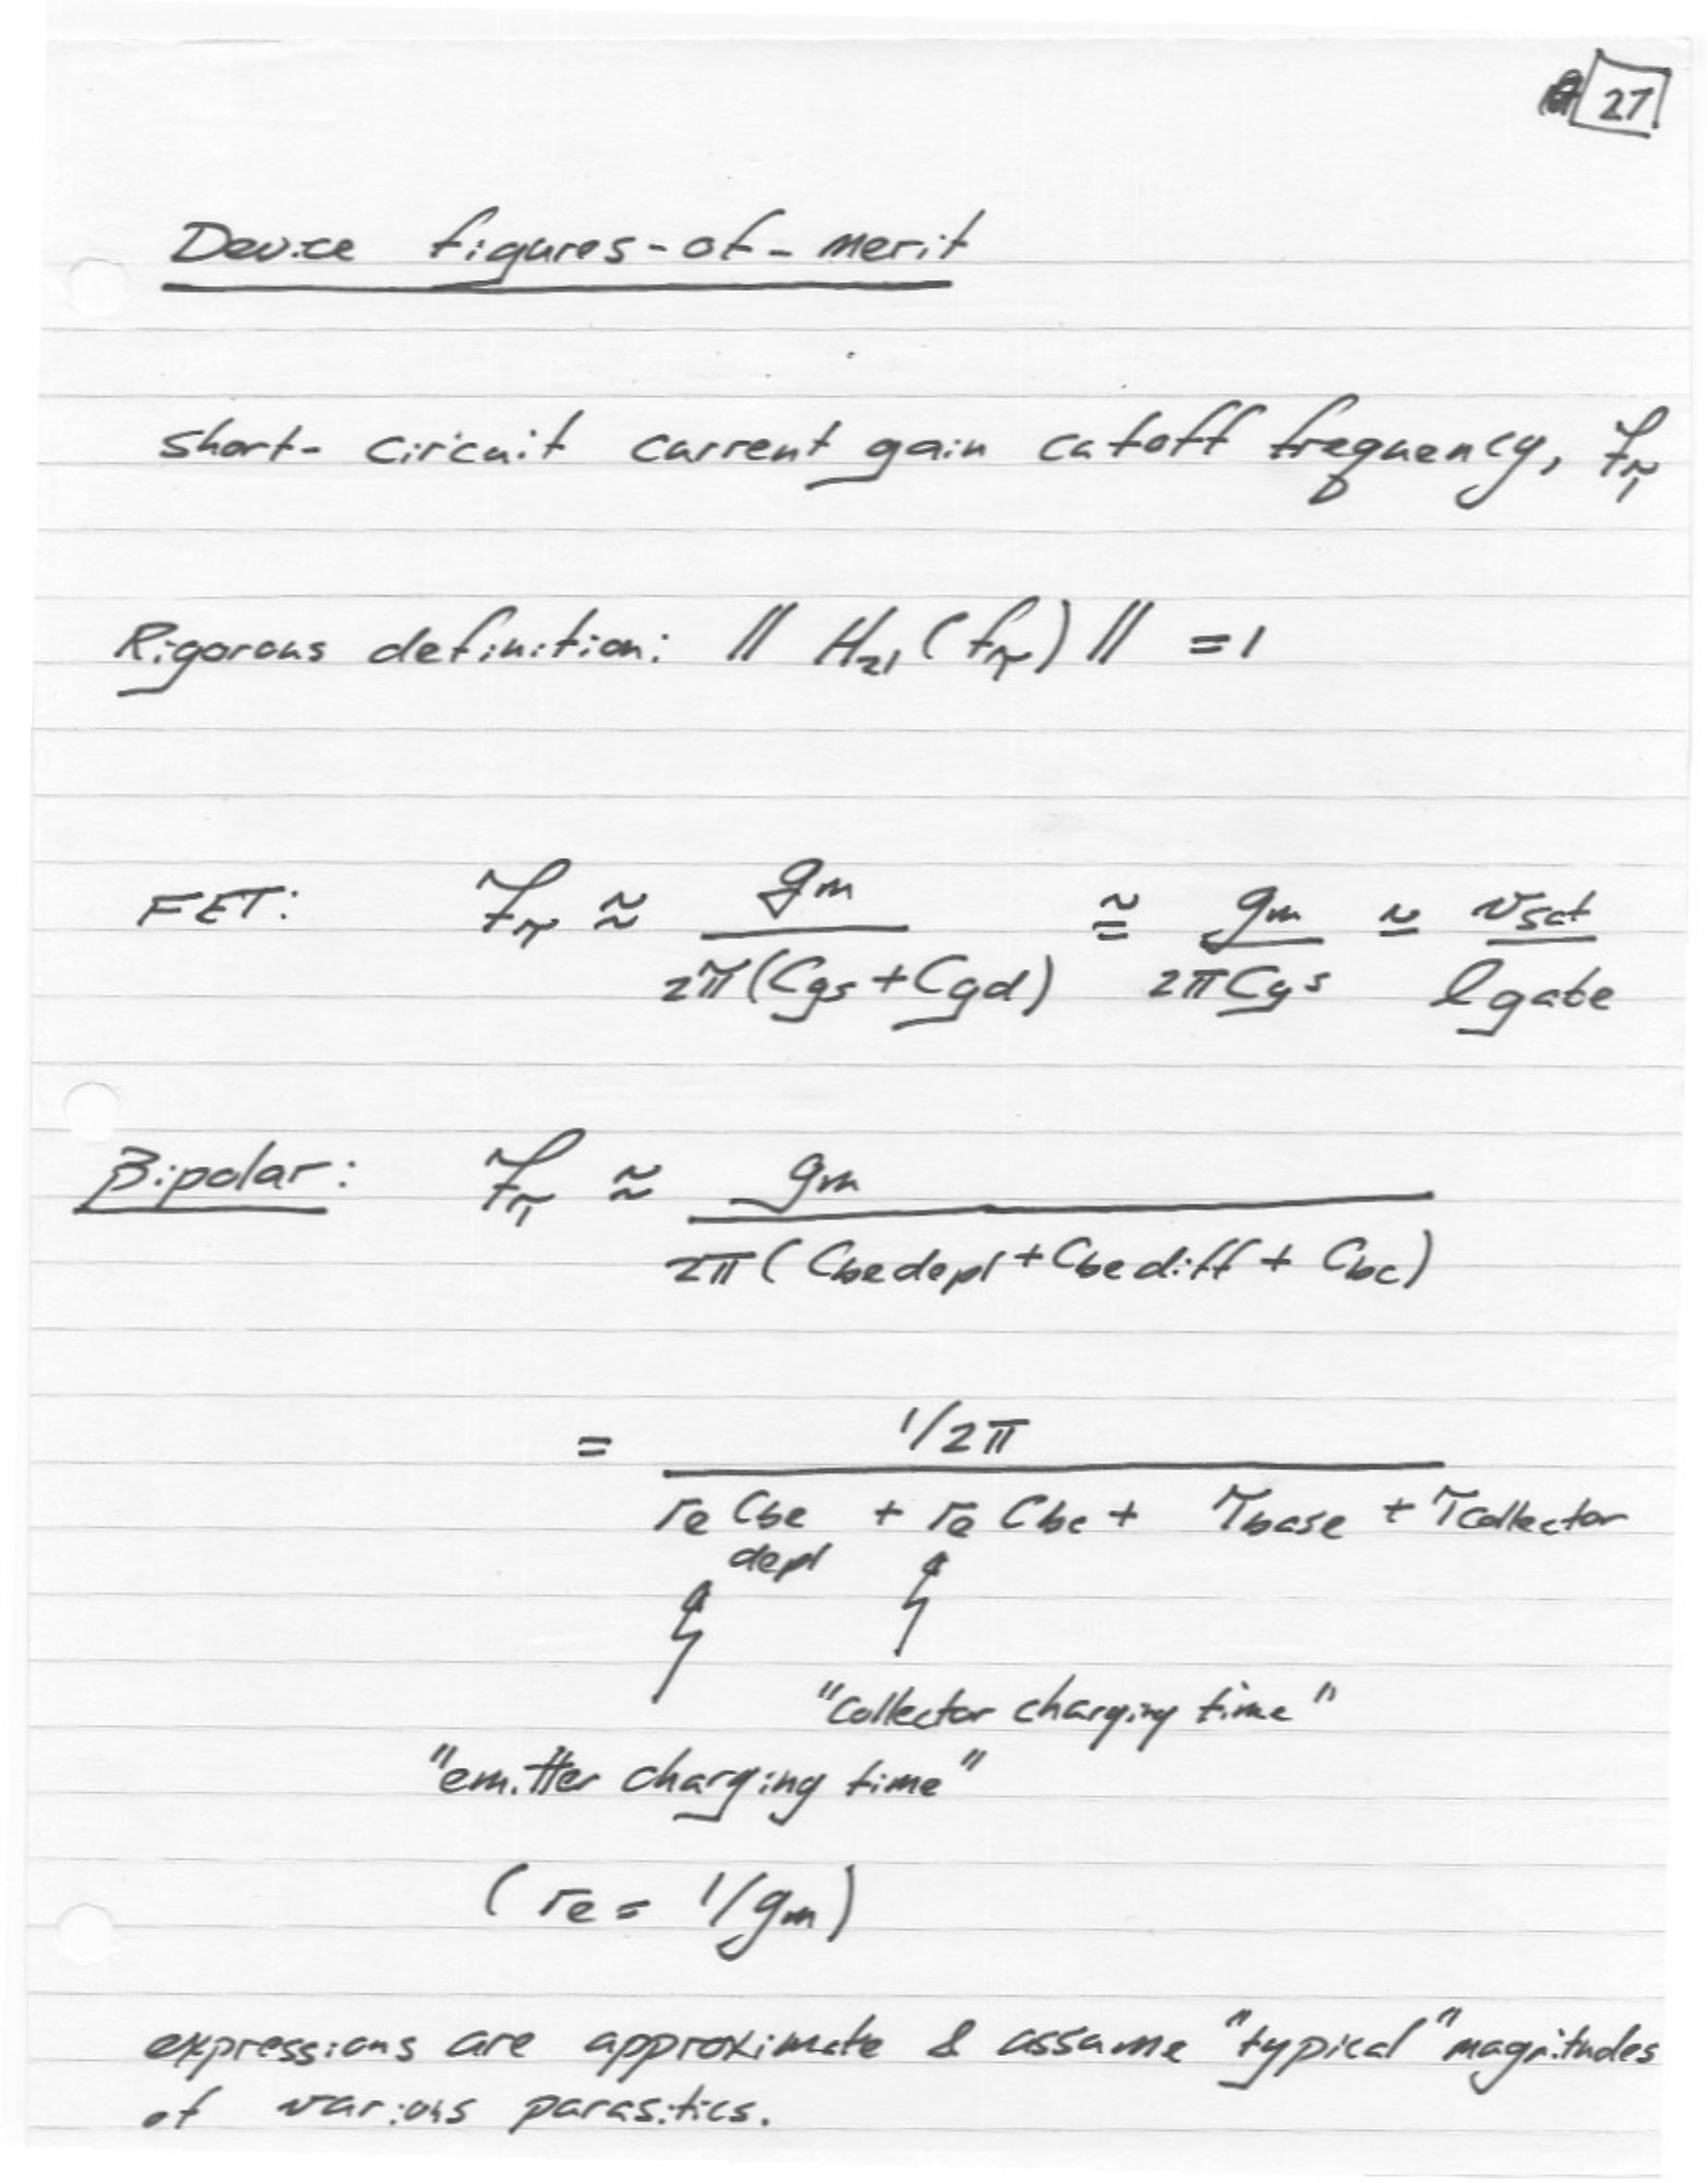 27
Device figures-of-merit
short-circuit current gain cutoff frequency, fτ
Rigorous definition: || H21(fτ) || = 1
FET: fτ ≈ gm / 2π(Cgs + Cgd) ≅ gm / 2πCgs ≃ vsat / lgate
Bipolar: fτ ≈ gm / 2π(Cbedepl + Cbediff + Cbc)
= 1/2π / re Cbe depl + re Cbc + τbase + τcollector
"collector charging time"
"emitter charging time"
(re = 1/gm)
expressions are approximate & assume "typical" magnitudes
of various parasitics.